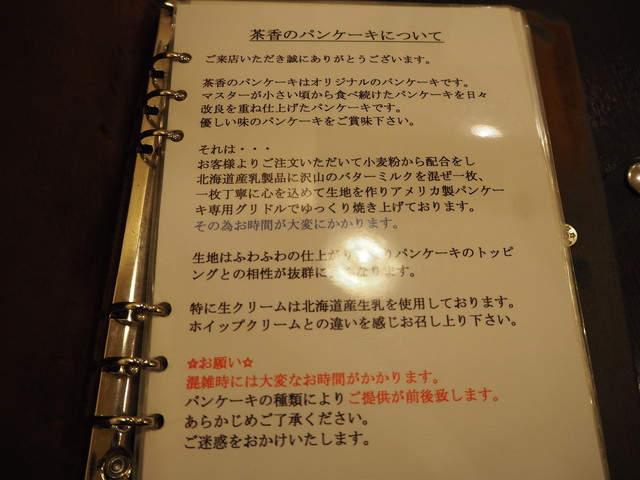 茶香のパンケーキについて
ご来店いただき誠にありがとうございます。
茶香のパンケーキはオリジナルのパンケーキです。
マスターが小さい頃から食べ続けたパンケーキを日々
改良を重ね仕上げたパンケーキです。
優しい味のパンケーキをご賞味下さい。
それは・・・
お客様よりご注文いただいて小麦粉から配合をし
北海道産乳製品に沢山のバターミルクを混ぜ一枚、
一枚丁寧に心を込めて生地を作りアメリカ製パンケー
キ専用グリドルでゆっくり焼き上げております。
その為お時間が大変にかかります。
生地はふわふわの仕上が りパンケーキのトッピ
ングとの相性が抜群に なります。
特に生クリームは北海道産生乳を使用しております。
ホイップクリームとの違いを感じお召し上り下さい。
☆お願い☆
混雑時には大変なお時間がかかります。
パンケーキの種類によりご提供が前後致します。
あらかじめご了承ください。
ご迷惑をおかけいたします。